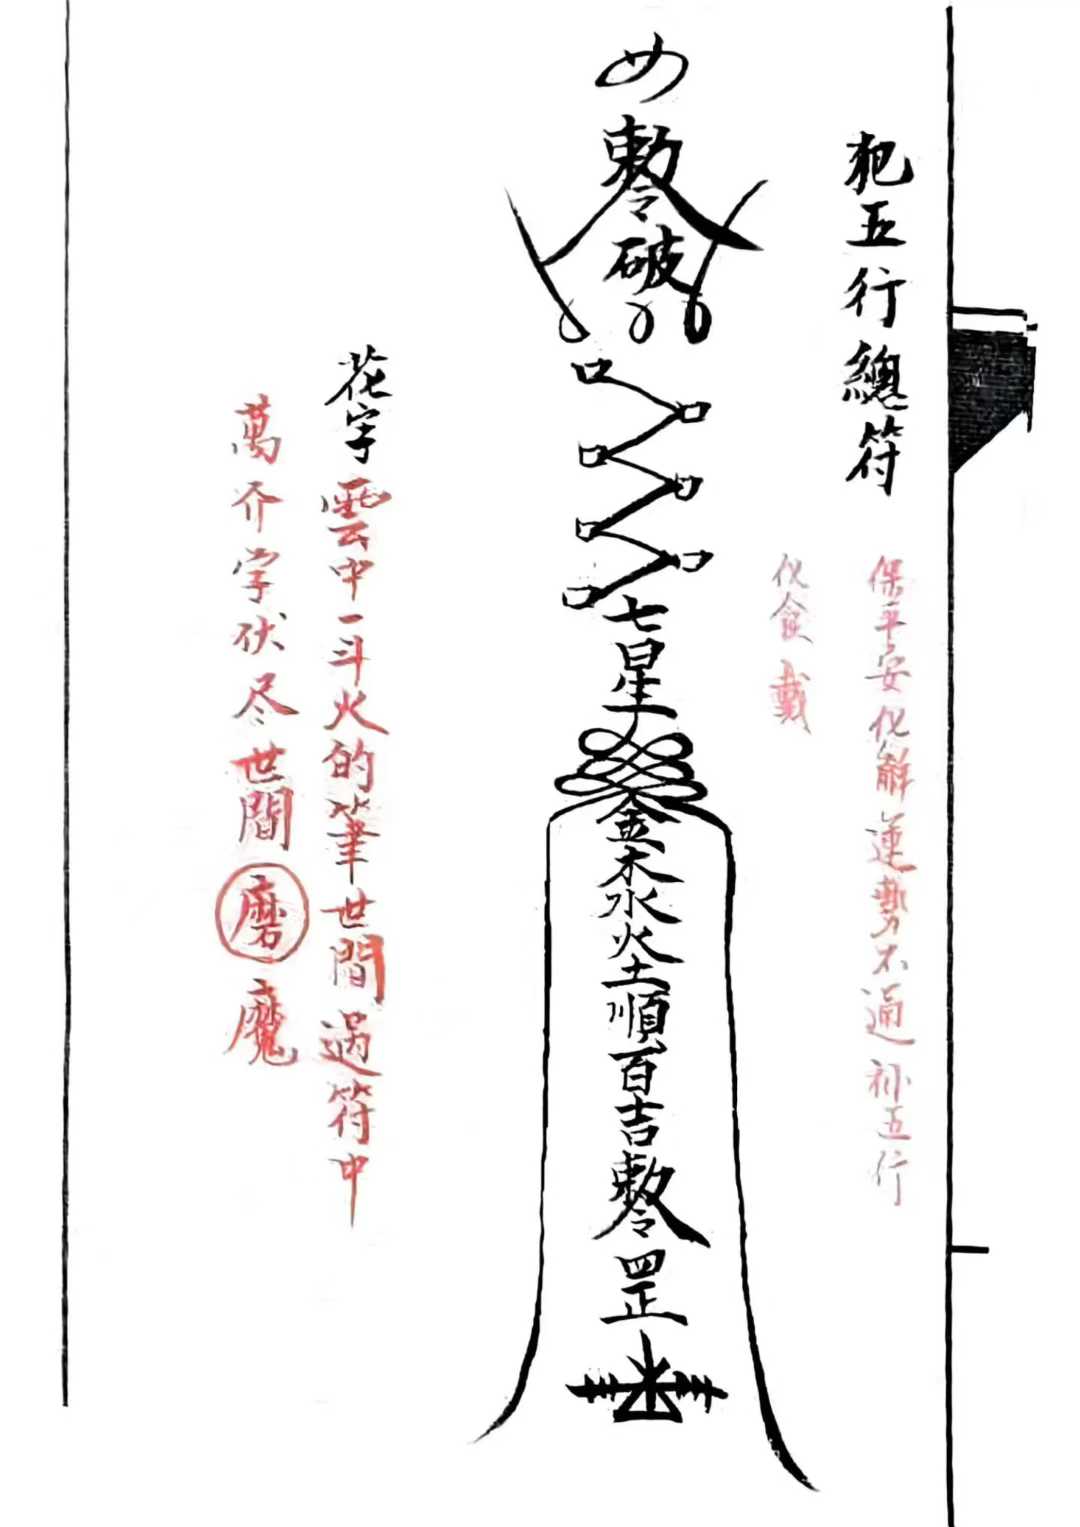 犯五行總符
保平安化解運勢不通补五行
化食戴
敕令破
七星
金木水火土順百吉敕令罡
花字雲中一斗火的筆世間過符中
萬介字伏尽世間磨魔